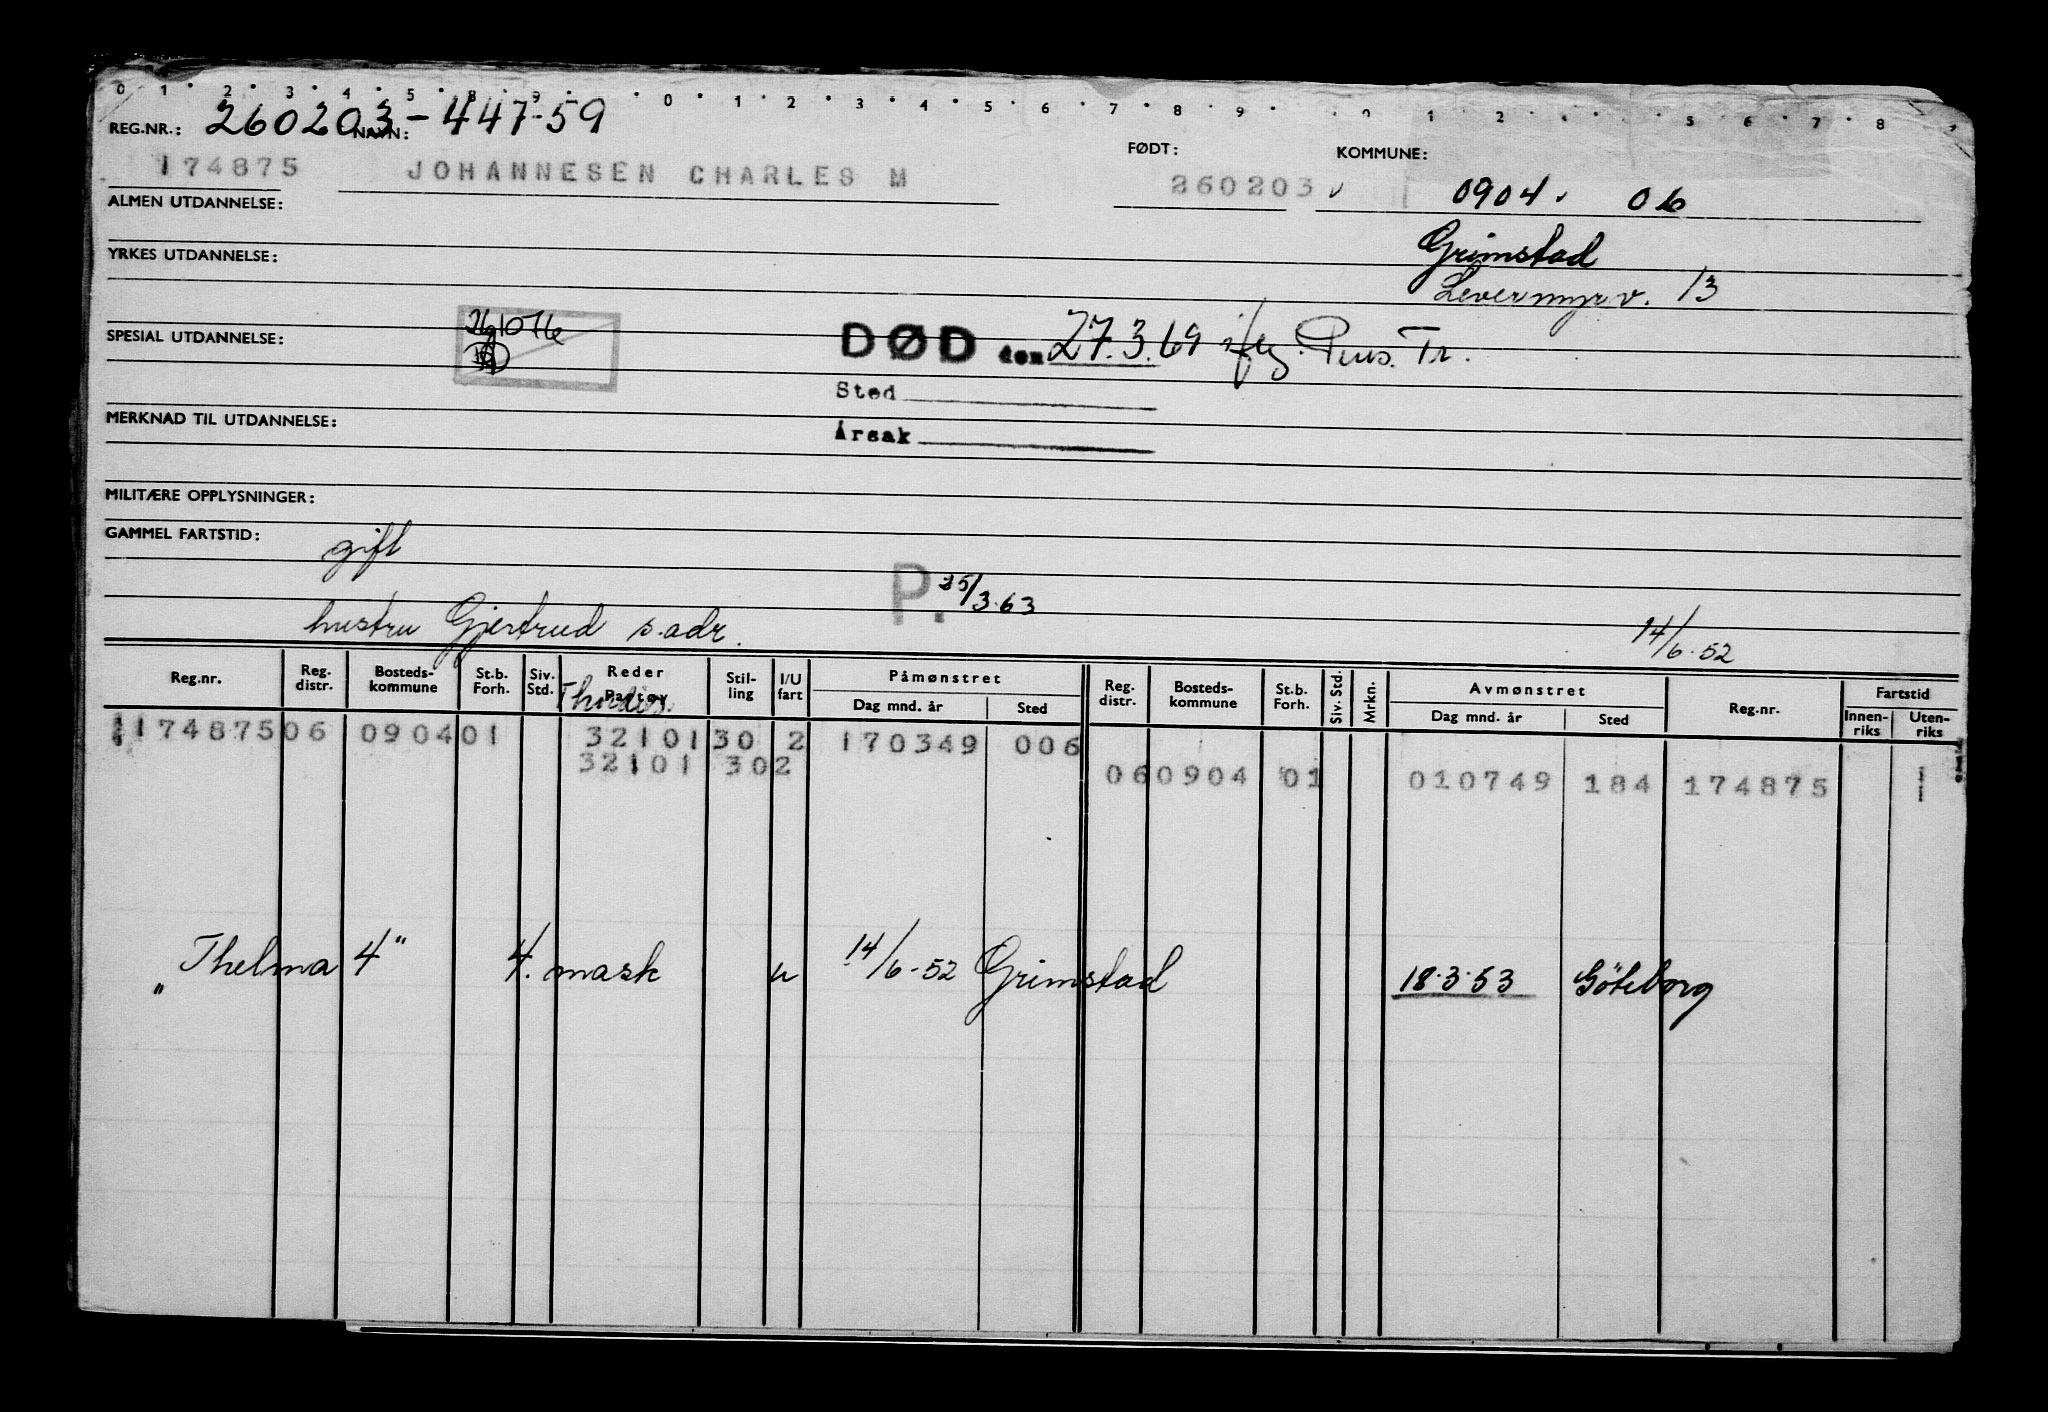 0 1 2 3 4 5 8 9 0 1 2 3 4 5 6 7 8 9 1 2 5 6 7 8
REG.NR.: 260203-447-59 NAVN: FØDT: KOMMUNE:
174875 JOHANNESEN CHARLES M 260203 0904 06
ALMEN UTDANNELSE:
Grimstad
YRKES UTDANNELSE:
Levermyrv. 13
SPESIAL UTDANNELSE: DØD den 27.3.69 iflg. Pens. Tr.
Sted
MERKNAD TIL UTDANNELSE: Årsak
MILITÆRE OPPLYSNINGER:
GAMMEL FARTSTID: gift
P. 25/3.63
hustru Gjertrud s.adr. 14/6-52
Reg.nr. Reg. distr. Bosteds-kommune St.b. Forh. Siv. Std. Reder Partøy Stil-ling I/U fart Påmønstret Dag mnd. år Sted Reg. distr. Bosteds-kommune St.b. Forh. Siv. Std. Mrkn. Avmønstret Dag mnd. år Sted Reg.nr. Fartstid Innen-riks Uten-riks
Thordis.
117487506 090401 32101 30 2 170349 006
32101 302 060904 01 010749 184 174875
„Thelma 4" 4. mask u 14/6-52 Grimstad 18.3.53 Göteborg